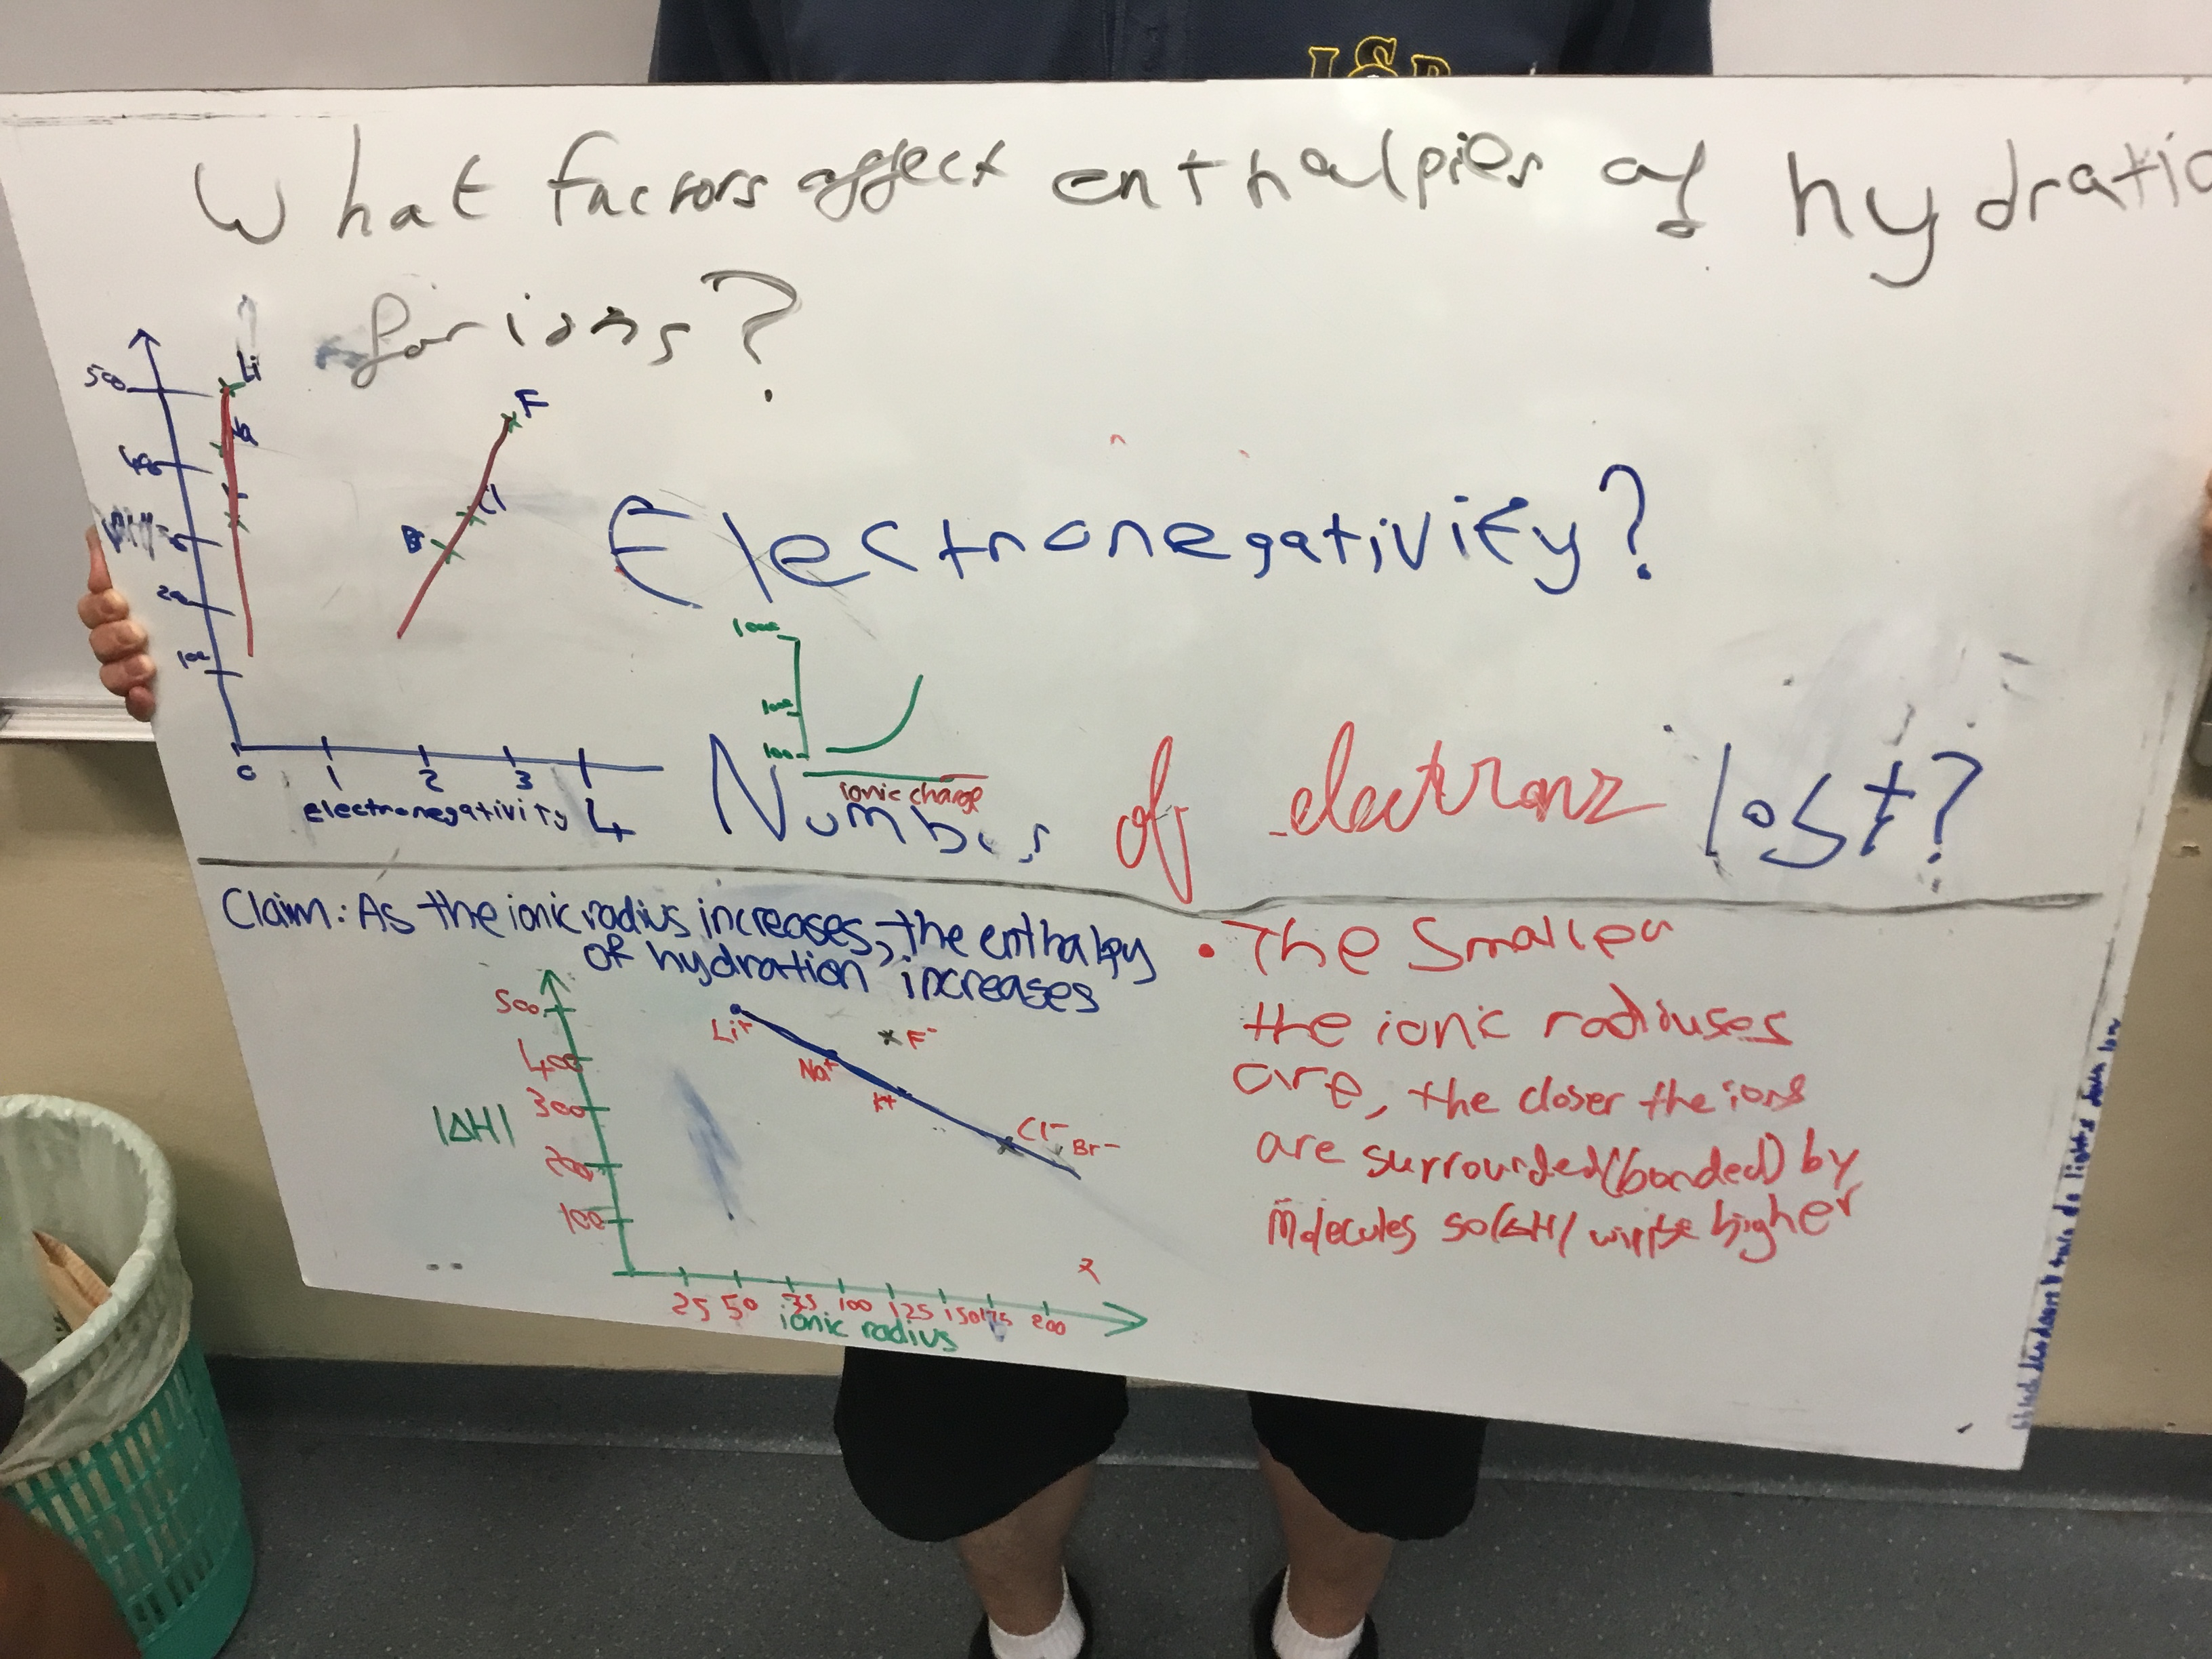 What factors affect enthalpies of hydratio
for ions?
500
Li
Na
F
Cl
Br
100
0
1
2
3
4
electronegativity
Electronegativity?
1000
100
ionic charge
Number
of electrons lost?
Claim: As the ionic radius increases, the enthalpy
of hydration increases
500
400
300
200
100
|ΔH|
Li+
Na+
K+
F-
Cl-
Br-
25 50 75 100 125 150 175 200
ionic radius
• The Smaller
the ionic radiuses
are, the closer the ions
are surrounded (bonded) by
molecules so |ΔH| will be higher